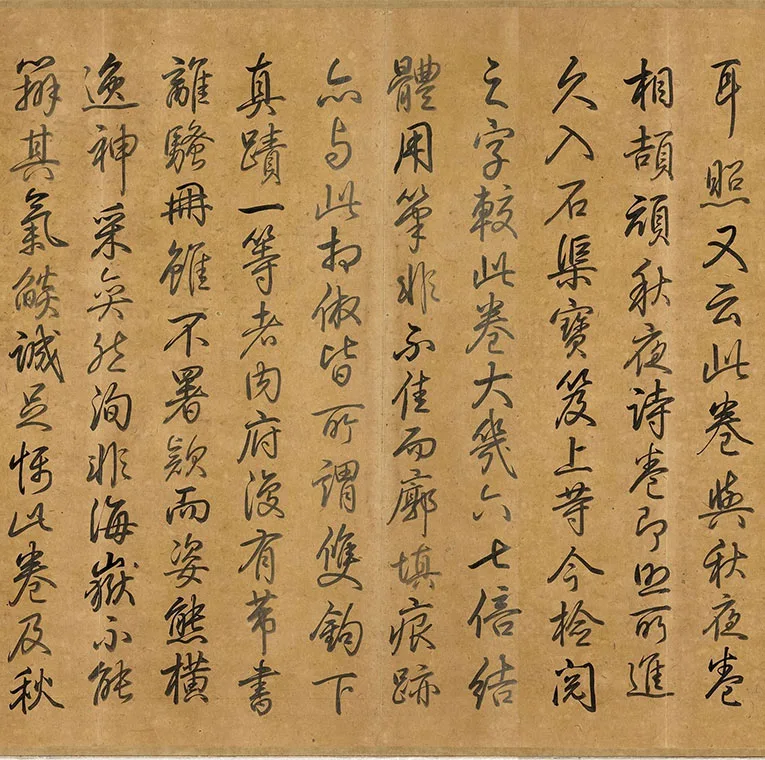 耳照又云此卷與秋夜卷
相頡頏秋夜詩卷即照所進
久入石渠寶笈上等今檢閱
之字較此卷大幾六七倍結
體用筆非不佳而廓填痕跡
亦与此相倣皆所謂雙鉤下
真蹟一等者內府復有芾書
離騷冊雖不署款而姿態橫
逸神采奕然洵非海嶽不能
辦其氣燄誠足怖此卷及秋